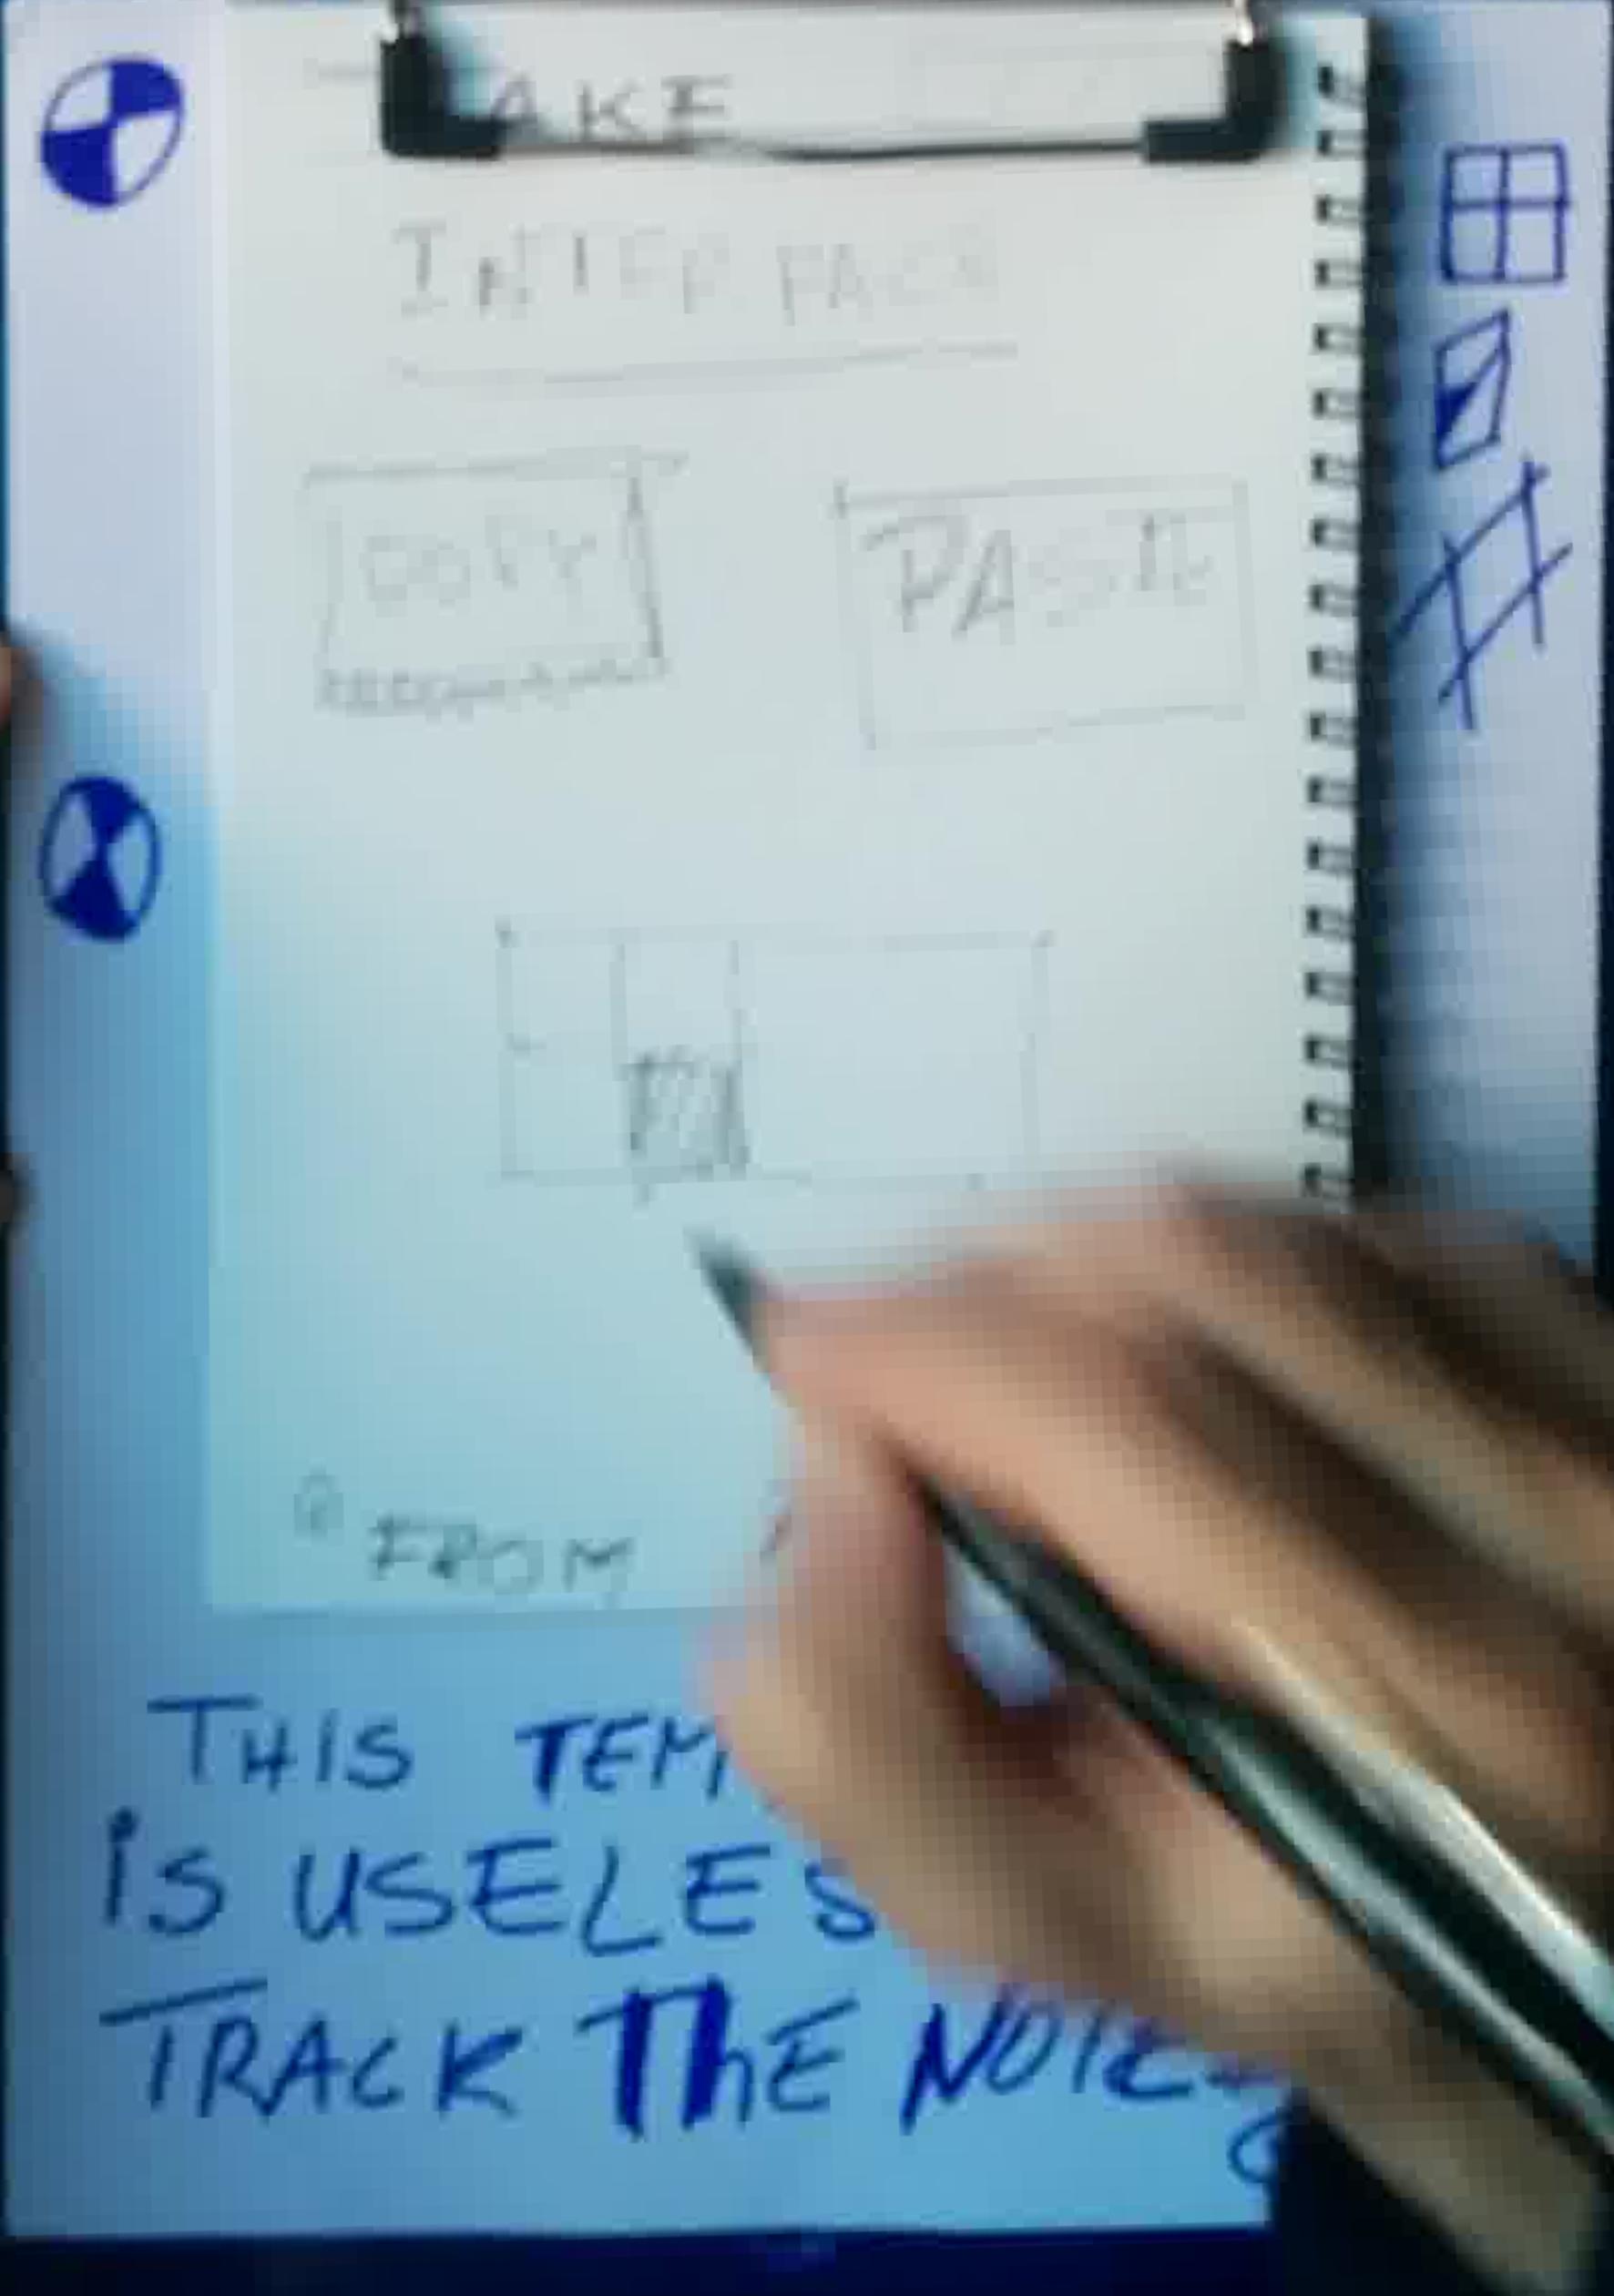 AKE
INTERFACE
COPY PASTE
FROM
THIS TEM
iS USELES
TRACK ThE NOTE